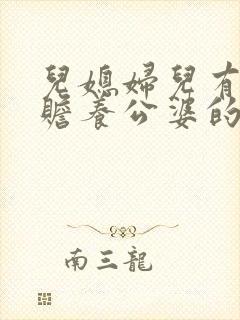 兒媳婦兒有
贍養公婆的
南三龍